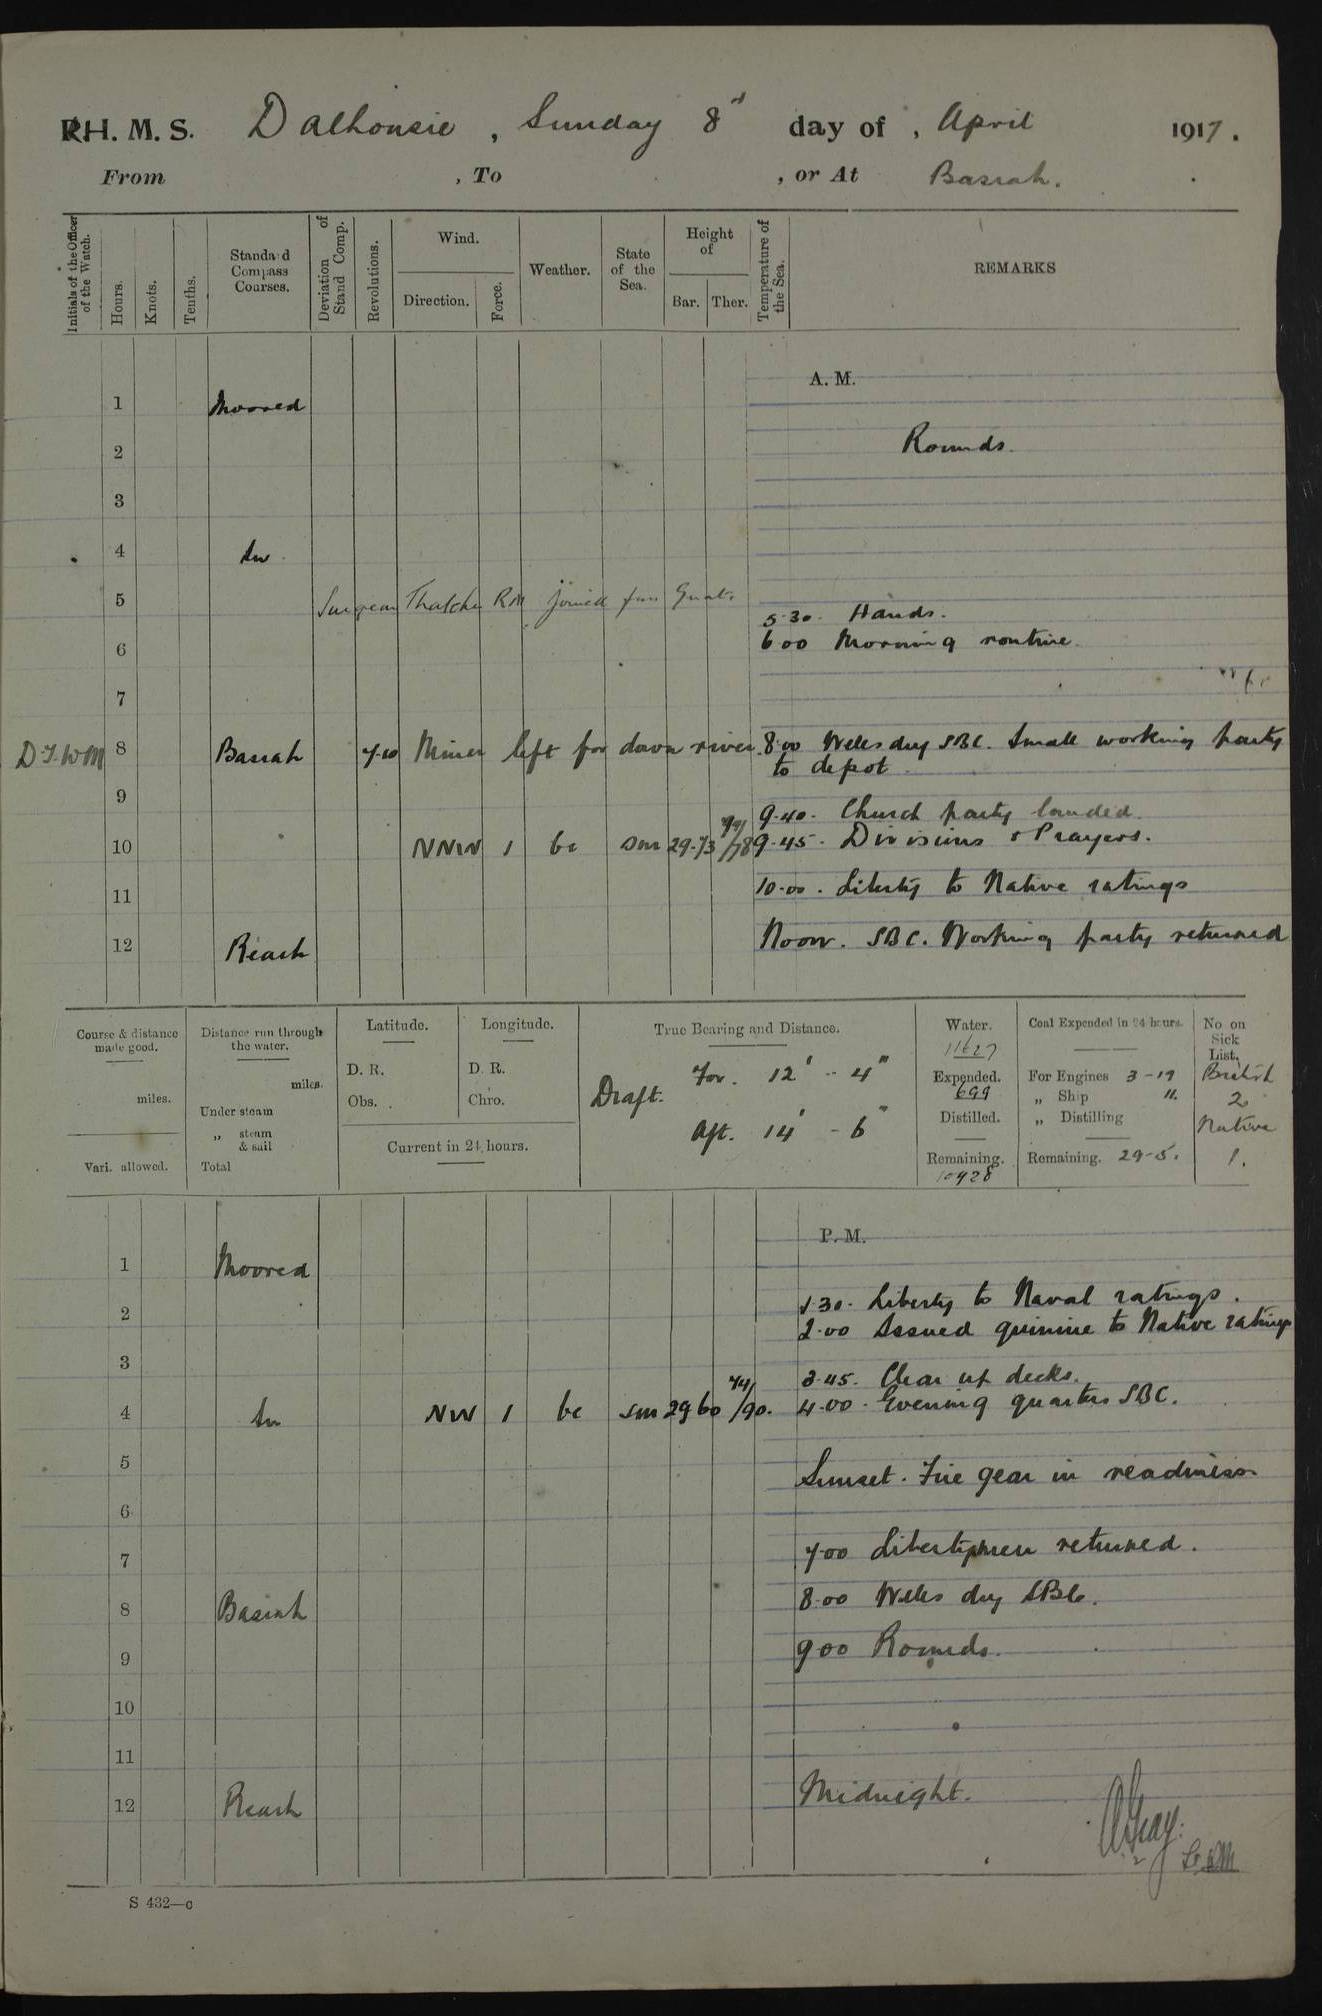 R.H. M. S. Dalhousie, Sunday 8th day of, April 1917.
From , To , or At Basrah.
Initials of the Officer of the Watch.
Hours.
Knots.
Tenths.
Standard Compass Courses.
Deviation of Stand Comp.
Revolutions.
Wind.
Direction.
Force.
Weather.
State of the Sea.
Height of
Bar. Ther.
Temperature of the Sea.
REMARKS
A. M.
1 Moored
2 Rounds.
3
4 In
5 Surgeon Thatcher RN joined
5.30. Hands.
6.00 Morning routine.
6
7
8 Basrah 7.10 Miner left for down river 8.00 Weeks dug SBC. Small working party
to depot.
9
9.40. Church party landed.
10 NNW 1 bc sm 29.73 79/78 9.45. Divisions & Prayers.
10.00. Liberty to Native ratings
11
12 Reach Noon. SBC. Working party returned
Course & distance made good.
miles.
Vari. allowed.
Distance run through the water.
miles.
Under steam
„ steam & sail
Total
Latitude.
D. R.
Obs.
Longitude.
D. R.
Chro.
Current in 24 hours.
True Bearing and Distance.
Draft. For. 12' - 4"
Aft. 14' - 6"
Water.
11627
Expended.
699
Distilled.
Remaining.
10928
Coal Expended in 24 hours.
For Engines 3-19
„ Ship ".
„ Distilling
Remaining. 29-5.
No on Sick List.
British
2
Native
1.
P. M.
1 Moored
1.30. Liberty to Naval ratings.
2
2.00 Issued quinine to Native ratings
3
3.45. Clear up decks.
4 In NW 1 bc sm 29 60 74/90. 4.00. Evening quarters SBC.
5 Sunset. Fire gear in readiness
6
7 7.00 Libertymen returned.
8 Basrah 8.00 SBC.
9 9.00 Rounds.
10
11
12 Reach Midnight.
S 432—c